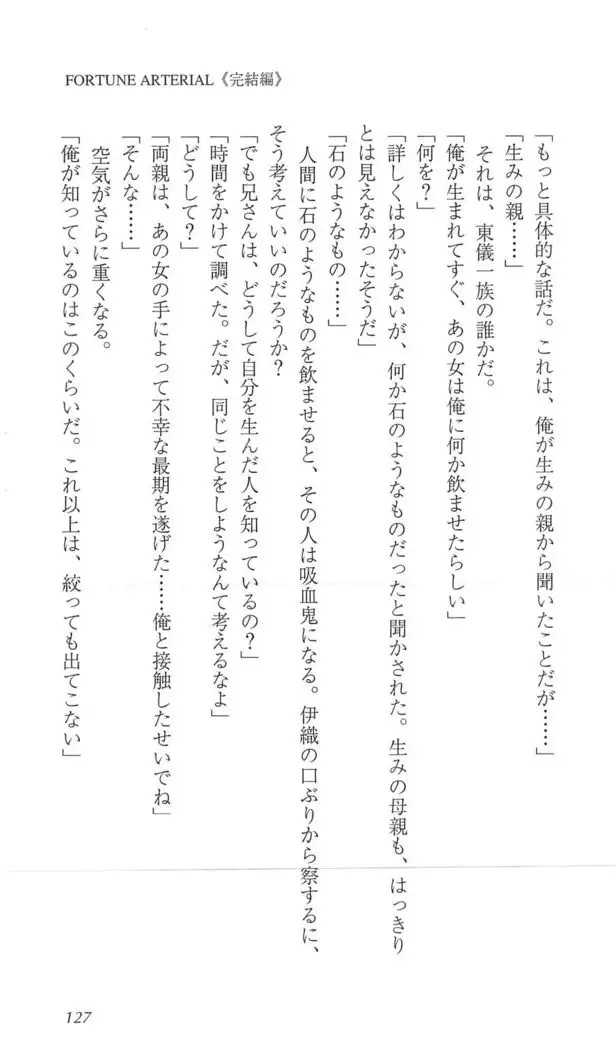 FORTUNE ARTERIAL《完結編》
「もっと具体的な話だ。これは、俺が生みの親から聞いたことだが……」
「生みの親……」
それは、東儀一族の誰かだ。
「俺が生まれてすぐ、あの女は俺に何か飲ませたらしい」
「何を？」
「詳しくはわからないが、何か石のようなものだったと聞かされた。生みの母親も、はっきり
とは見えなかったそうだ」
「石のようなもの……」
人間に石のようなものを飲ませると、その人は吸血鬼になる。伊織の口ぶりから察するに、
そう考えていいのだろうか？
「でも兄さんは、どうして自分を生んだ人を知っているの？」
「時間をかけて調べた。だが、同じことをしようなんて考えるなよ」
「どうして？」
「両親は、あの女の手によって不幸な最期を遂げた……俺と接触したせいでね」
「そんな……」
空気がさらに重くなる。
「俺が知っているのはこのくらいだ。これ以上は、絞っても出てこない」
127